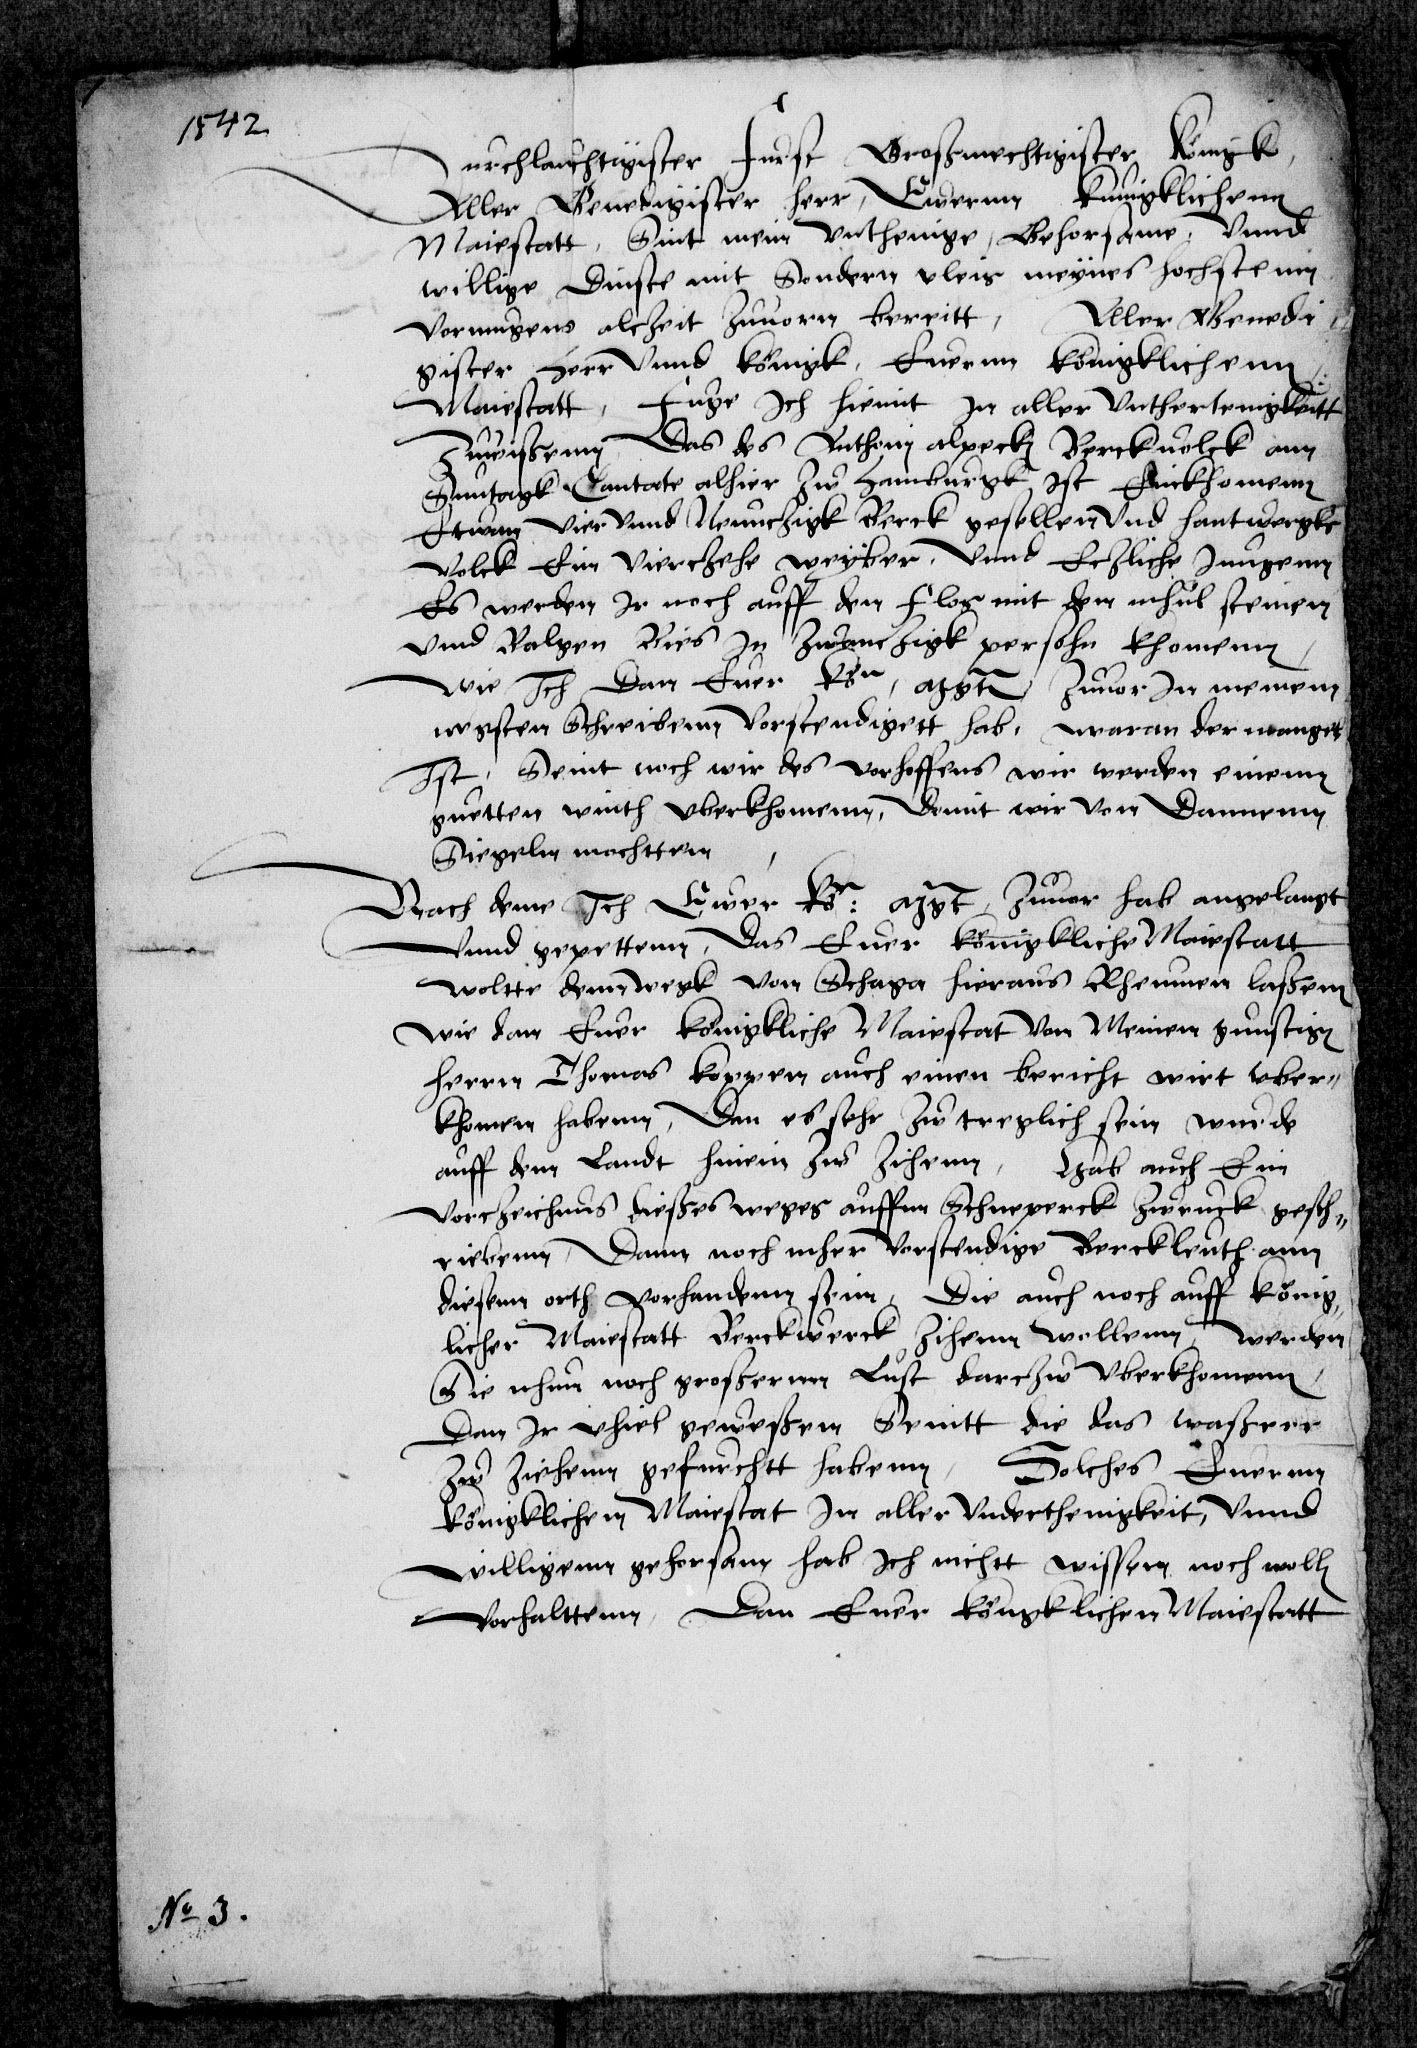 1542
Durchlauchtigister Furst Großmechtigister König,
Aller Genedigister herr, Ewernn kunigklichenn
Maiestatt, Sint mein vnthenige, Gehorsame, Vnnd
willige Dinste mit Sondern vleis meynes hochstenn
vormugens alczeit zuuorn bereitt, Aller Genedi-
gister Herr Vnnd Königk, Euernn Königklichenn
Maiestatt, Fuge Ich hiemit In aller Vnthertenigkeitt
Zuwissenn, Das des Anthoni alpeck Berckuolck am
Suntagk Cantate alhier zw Hamburgk ist Einkhomenn
Etwan Vier Vnnd Neunczigk Berck gesellen Vnd hantwergks
Volck Ein Vierczehe weyber, Vnnd Eczliche Jungenn
Es werden Ir noch auff den Flos mit den mhul steinen
vnnd Balgen Bies In zwanczigk persohn khomenn,
Wie Ich Dan Euer Kön, Mgt, zuuor In meinem
negsten Schreibenn Vorstendigett hab, waran der mangel
Ist, Seint noch wir des vorhoffens wir werden einenn
guetten winth vberkhomenn, Domit wir von Dannenn
Siegeln mochttenn,
Nach deme Ich Ewer Kö: Mgt, zuuor hab angelangt
Vnnd gepettenn, Das Euer königkliche Maiestatt
woltte denn wegk von Schagn hieraus Rheumen lassenn
wie dan Euer königkliche Maiestat Von Meinem gunstign
herrn Thomas koppen auch einen bericht wirt vber-
khomen habenn, Dan es sehr zw treglich sein wurde
auff dem Landt hinein zw Zihenn, Hab auch Ein
Vorczeichnus dießes weges auffm Schneperck zwruck gesch-
riebenn, Dann noch mher Vorstendige Berckleuth ann
diesenn orth vorhandenn sein, Die auch noch auff König-
licher Maiestatt Berckwerck Zihenn wollenn, werden
Sie nhun noch grosßernn Lust darczw Vberkhomenn,
Dan Ir vhiel gewesßen Seintt die das wasßerr
zw ziehenn gefurchtt habenn, Solches Euernn
Königklichen Maiestat In aller Vnderthenigkeit, Vnnd
willigenn gehorsam hab Ich nichtt wissen noch wolln
Vorhalttenn, Dan Euer königklichen Maiestatt
No 3.